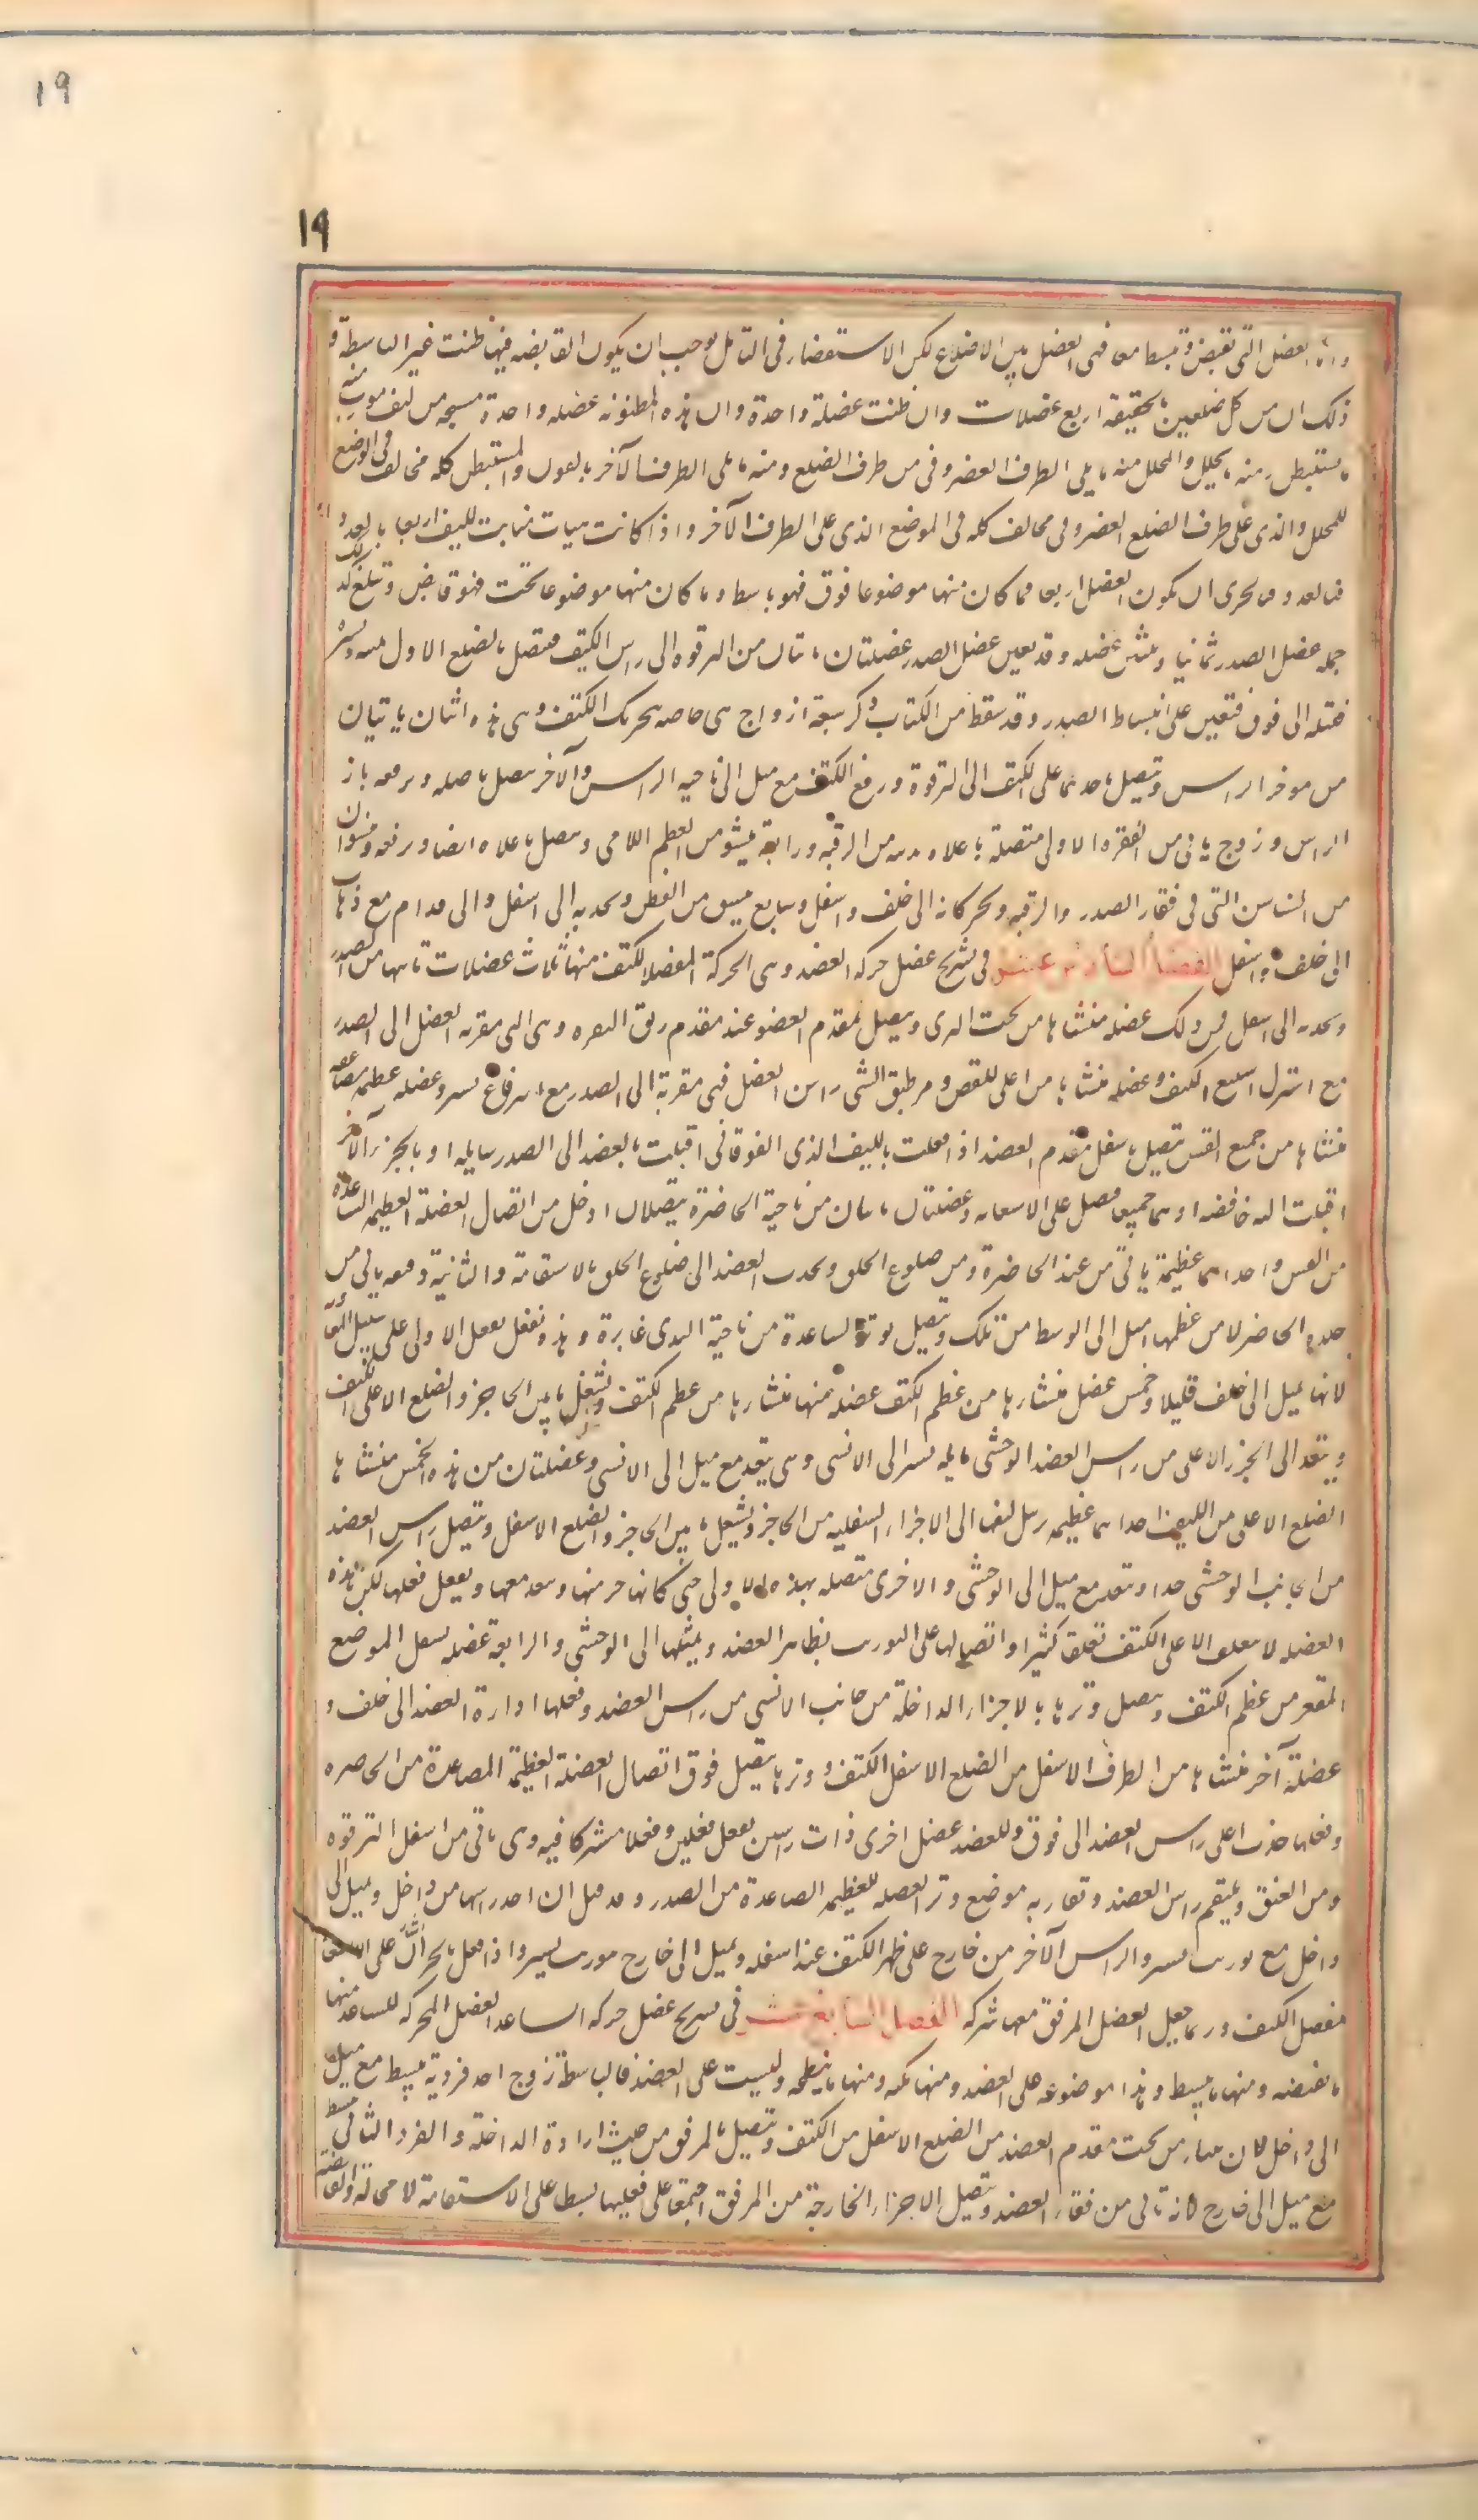 ١٩
١٩
واما العضل التى تقبض وتبسط معا فهى العضل بين الاضلاع لكن الاستقصاء فى التامل يوجب ان يكون القابضه فيها ظنت غير الباسطة و
ذلك ان من كل ضلعين بالحقيقه اربع عضلات وان ظنت عضلة واحدة وان هذه المظنونه عضله واحدة منسجه من ليف مورب منه
ما يستبطن ومنه ما يجلل والمجلل منه ما يلى الطرف الغضروفى من طرف الضلع ومنه ما يلى الطرف الآخر والمستبطن كله مخالف فى الوضع
للمجلل والذى على طرف الضلع الغضروفى مخالف كله فى الموضع الذى على الطرف الآخر واذا كانت هيات الليف اربعا بالعدد
فبالحرى ان يكون العضل اربعا فما كان منها موضوعا فوق فهو باسط وما كان منها موضوعا تحت فهو قابض وتبلغ لذلك
جمله عضل الصدر ثمانيا وثمانين عضله وقد يعين عضل الصدر عضلتان تاتيان من الترقوه الى راس الكتف فتتصل بالضلع الاول منه
فتشيله الى فوق فتعين على انبساط الصدر وقد سقط من الكتاب ذكر سبعة ازواج هى خاصه بتحريك الكتف وهى هذه اثنان ياتيان
من موخر الراس وتتصل احدهما على الكتف الى الترقوة ورفع الكتف مع ميل الى ناحيه الراس والآخر يتصل باصله ويرفعه بازاء
الراس وزوج ياتى من الفقره الاولى متصلة باعلاه من الرقبه ورابع ينشو من العظم اللامى ويتصل باعلاه ايضا ويرفعه
من السناسن التى فى فقار الصدر والرقبه ويحركانه الى خلف واسفل وسابع من القطن ويجذبه الى اسفل والى قدام مع ذهاب
الى خلف واسفل الفصل السادس عشر فى تشريح عضل حركه العضد وهى المحركة لمفصل الكتف منها ثلاث عضلات تاتيها من الصدر
وتجذبه الى اسفل من ذلك عضله منشاها من تحت الثدى ويتصل بمقدم العضد عند مقدم زيق النقره وهى التى مقربه العضد الى الصدر
مع استنزال يستتبع الكتف وعضله منشاها من اعلى القص ويطيف بانسى راس العضد فهى مقربة الى الصدر مع استرفاع يسير وعضله عظيمه مضاعفه
منشاها من جميع القس يتصل باسفل مقدم العضد اذا فعلت بالليف الذى الفوقانى اقبلت بالعضد الى الصدر شايله او بالجزء الآخر
اقبلت اليه خافضه او بهما جميعا فيقبل على الاستقامه وعضلتان تاتيان من ناحية الخاصرة يتصلان ادخل من اتصال العضلة العظيمه الصاعده
من القس واحداهما عظيمة ياتى من عند الخاصرة ومن ضلوع الخلف ويجذب العضد الى ضلوع الخلف بالاستقامه والثانية دقيقه ياتى من
جلده الخاصرة لا من عظمها اميل الى الوسط من تلك ويتصل بوتر الصاعدة من ناحية الثدى غايرة وهذه تفعل فعل الاولى على سبيل المعونة
لانها يميل الى خلف قليلا وخمس عضل منشارها من عظم الكتف عضله منها منشارها من عظم الكتف ويشغل ما بين الحاجز والضلع الاعلى للكتف
وينفذ الى الجزء الاعلى من راس العضد الوحشى مايله يسيرا الى الانسى وهى تبعد مع ميل الى الانسى وعضلتان من هذه الخمس منشاها
الضلع الاعلى من الكتف احداهما عظيمه يرسل ليفها الى الاجزاء السفليه من الحاجز ويشغل ما بين الحاجز والضلع الاسفل ويتصل براس العضد
من الجانب الوحشى جدا وتبعد مع ميل الى الوحشى والاخرى متصله بهذه الاولى حتى كانها جزء منها وينفذ معها ويفعل فعلها لكن هذه
العضله لا يتعلق باعلى الكتف تعلقا كثيرا واتصالها على التوريب بظاهر العضد ويميلها الى الوحشى والرابعة عضله يشغل الموضع
المقعر من عظم الكتف ويتصل وترها بالاجزاء الداخلة من جانب الانسى من راس العضد وفعلها ادارة العضد الى خلف و
عضلة آخر منشاها من الطرف الاسفل من الضلع الاسفل للكتف ووترها يتصل فوق اتصال العضلة العظيمة الصاعدة من الخاصره
وفعلها جذب اعلى راس العضد الى فوق وللعضد عضل اخرى ذات راسين يفعل فعلين وفعلا مشتركا فيه وهى ياتى من اسفل الترقوه
ومن العنق ويلتقم راس العضد وتقارب موضع وتر العضله العظيمه الصاعدة من الصدر وقد قيل ان احد راسيها من داخل ويميل الى
داخل مع توريب يسير والراس الآخر من خارج على ظهر الكتف عند اسفله ويميل الى خارج بتوريب يسير واذا فعل بالجزءين اشال على الاستقامه
مفصل الكتف وربما جعل العضل المرفق معها شركه الفصل السابع عشر فى تشريح عضل حركه الساعد العضل المحركه للساعد منها
ما تقبضه ومنها ما تبسط وهذا موضوعه على العضد ومنها ما يكبه ومنها ما يبطحه وليست على العضد فالباسطة زوج احد فرديه يبسط مع ميل
الى داخل لان منشاه من تحت مقدم العضد من الضلع الاسفل من الكتف ويتصل بالمرفق من حيث اجزاءه الداخلة والفرد الثانى يبسط
مع ميل الى خارج لانه ياتى من فقار العضد ويتصل بالاجزاء الخارجة من المرفق اجتمعا على فعليهما بسطا على الاستقامة لا محالة والقابضه